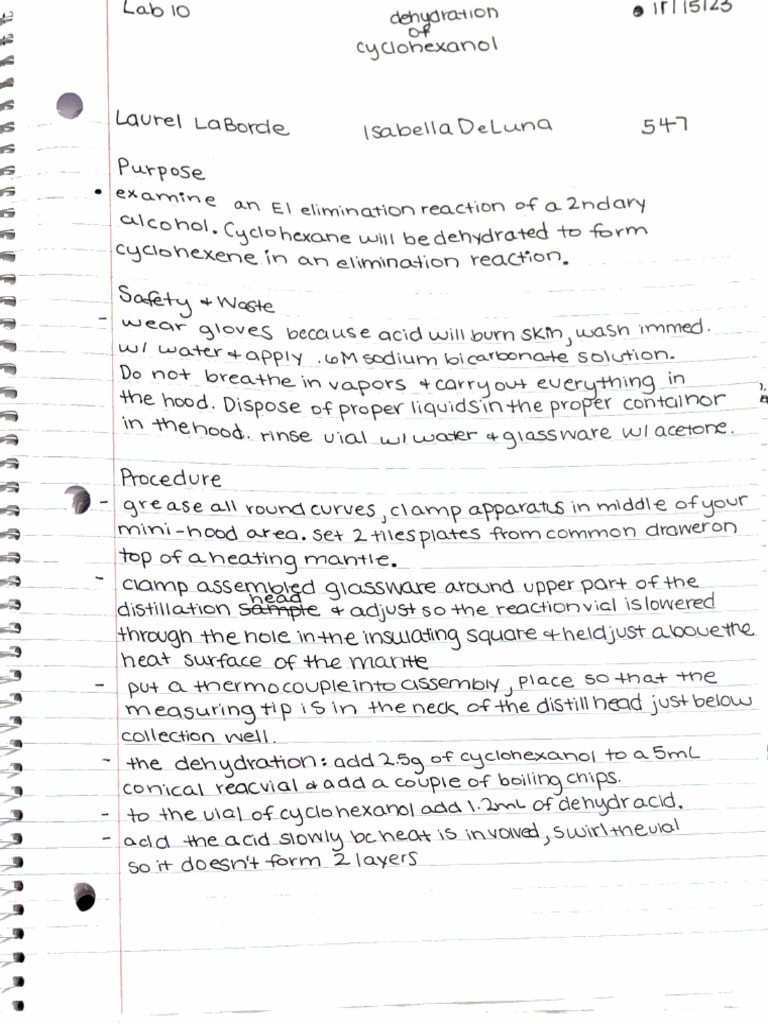 Lab 10
dehydration
of
cyclohexanol
Laurel LaBorde Isabella DeLuna 547
Purpose
• examine an E1 elimination reaction of a 2ndary
alcohol. Cyclohexane will be dehydrated to form
cyclohexene in an elimination reaction.
Safety + Waste
- wear gloves because acid will burn skin, wash immed.
w/ water + apply .6M sodium bicarbonate solution.
Do not breathe in vapors + carry out everything in
the hood. Dispose of proper liquids in the proper containor
in the hood. rinse vial w/ water + glassware w/ acetone.
Procedure
- grease all round curves, clamp apparatus in middle of your
mini-hood area. set 2 tiles plates from common drawer on
top of a heating mantle.
- clamp assembled glassware around upper part of the
head
distillation sample + adjust so the reaction vial is lowered
through the hole in the insulating square + held just above the
heat surface of the mantle
- put a thermocouple into assembly, place so that the
measuring tip is in the neck of the distill head just below
collection well.
- the dehydration: add 2.5g of cyclohexanol to a 5mL
conical reacvial + add a couple of boiling chips.
- to the vial of cyclohexanol add 1.2mL of dehydr acid.
- add the acid slowly bc heat is involved, swirl the vial
so it doesn't form 2 layers